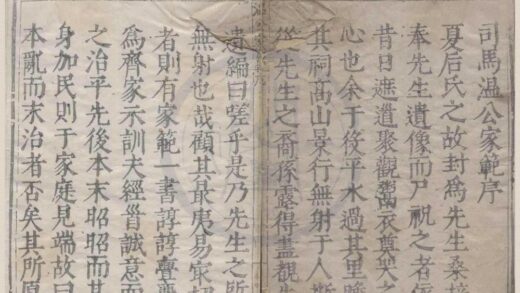 司馬溫公家範序
夏后氏之故封爲先生桑梓
奉先生遺像而尸祝之者信
昔日遮道聚觀鬻衣尊哭之
心也余于役平水過其里瞻
其祠高山景行無射于人斯
後先生之裔孫露得盡覩
遺編曰嗟乎是乃先生之所
無射也哉顧其最夷易
者則有家範一書諄諄亹
爲齊家示訓夫經首誠意而
之治平先後本末昭昭而其
身加民則于家庭見端故曰
本亂而末治者否矣其所